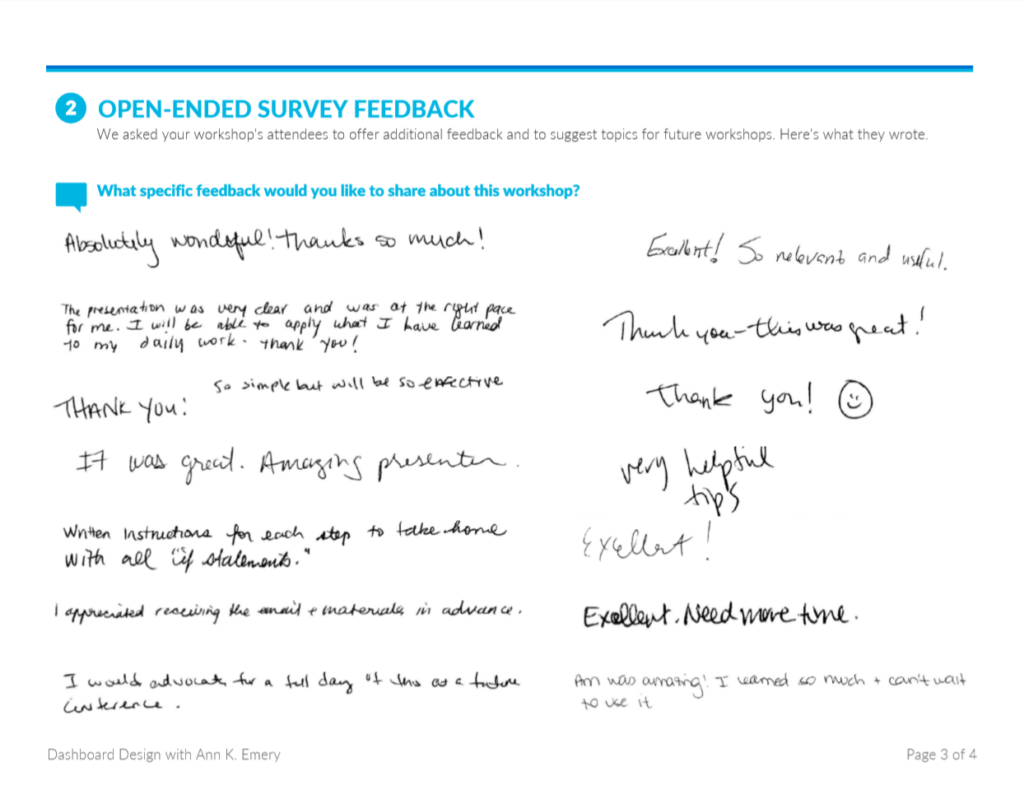 2 OPEN-ENDED SURVEY FEEDBACK
We asked your workshop's attendees to offer additional feedback and to suggest topics for future workshops. Here's what they wrote.
What specific feedback would you like to share about this workshop?
Absolutely wonderful! Thanks so much!
The presentation was very clear and was at the right pace
for me. I will be able to apply what I have learned
to my daily work. Thank you!
So simple but will be so effective
THANK YOU!
It was great. Amazing presenter.
Written Instructions for each step to take home
with all "if statements."
I appreciated receiving the email + materials in advance.
I would advocate for a full day of this as a future
conference.
Excellent! So relevant and useful.
Thank you - this was great!
Thank you!
very helpful
tips
Excellent!
Excellent. Need more time.
Ann was amazing! I learned so much + can't wait
to use it
Dashboard Design with Ann K. Emery
Page 3 of 4